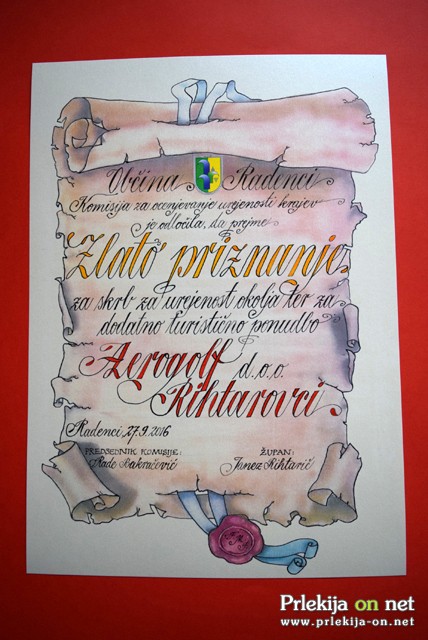 Občina Radenci
Komisija za ocenjevanje urejenosti krajev
je odločila, da prejme
Zlato priznanje
za skrb za urejenost okolja ter za
dodatno turistično ponudbo
Aerogolf d.o.o
Rihtarovci.
Radenci, 27.9.2016
PREDSEDNIK KOMISIJE: ŽUPAN:
Rade Bakračević Janez Rihtarič
Prlekija on net
www.prlekija-on.net